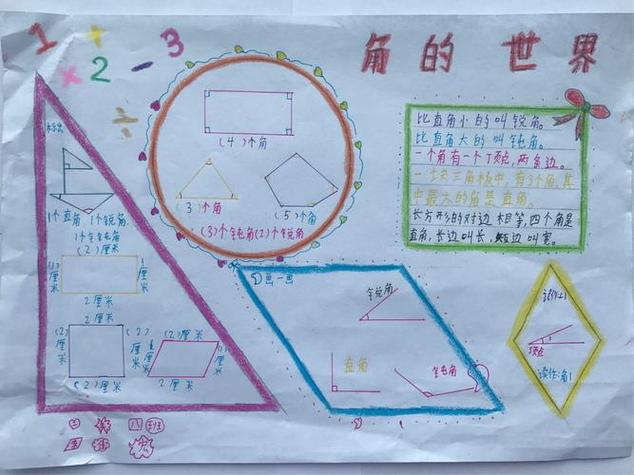 1 + × 2 - 3 ÷
角的世界
比直角小的叫锐角。
比直角大的叫钝角。
一个角有一个顶点,两条边。
一块三角板中,有3个角,其
中最大的角是直角。
长方形的对边相等,四个角是
直角,长边叫长,短边叫宽。
(4)个角
(3)个角
(5)个角
(3)个钝角(2)个锐角
1个直角 1个锐角
1个钝角
(2)厘米
(1)厘米
1厘米
2厘米
2厘米
(2)厘米
(2)厘米
(2)厘米
(2)厘米
1厘米
2厘米
①画一画
锐角
直角
钝角
记作∠1
顶点
读作:角1